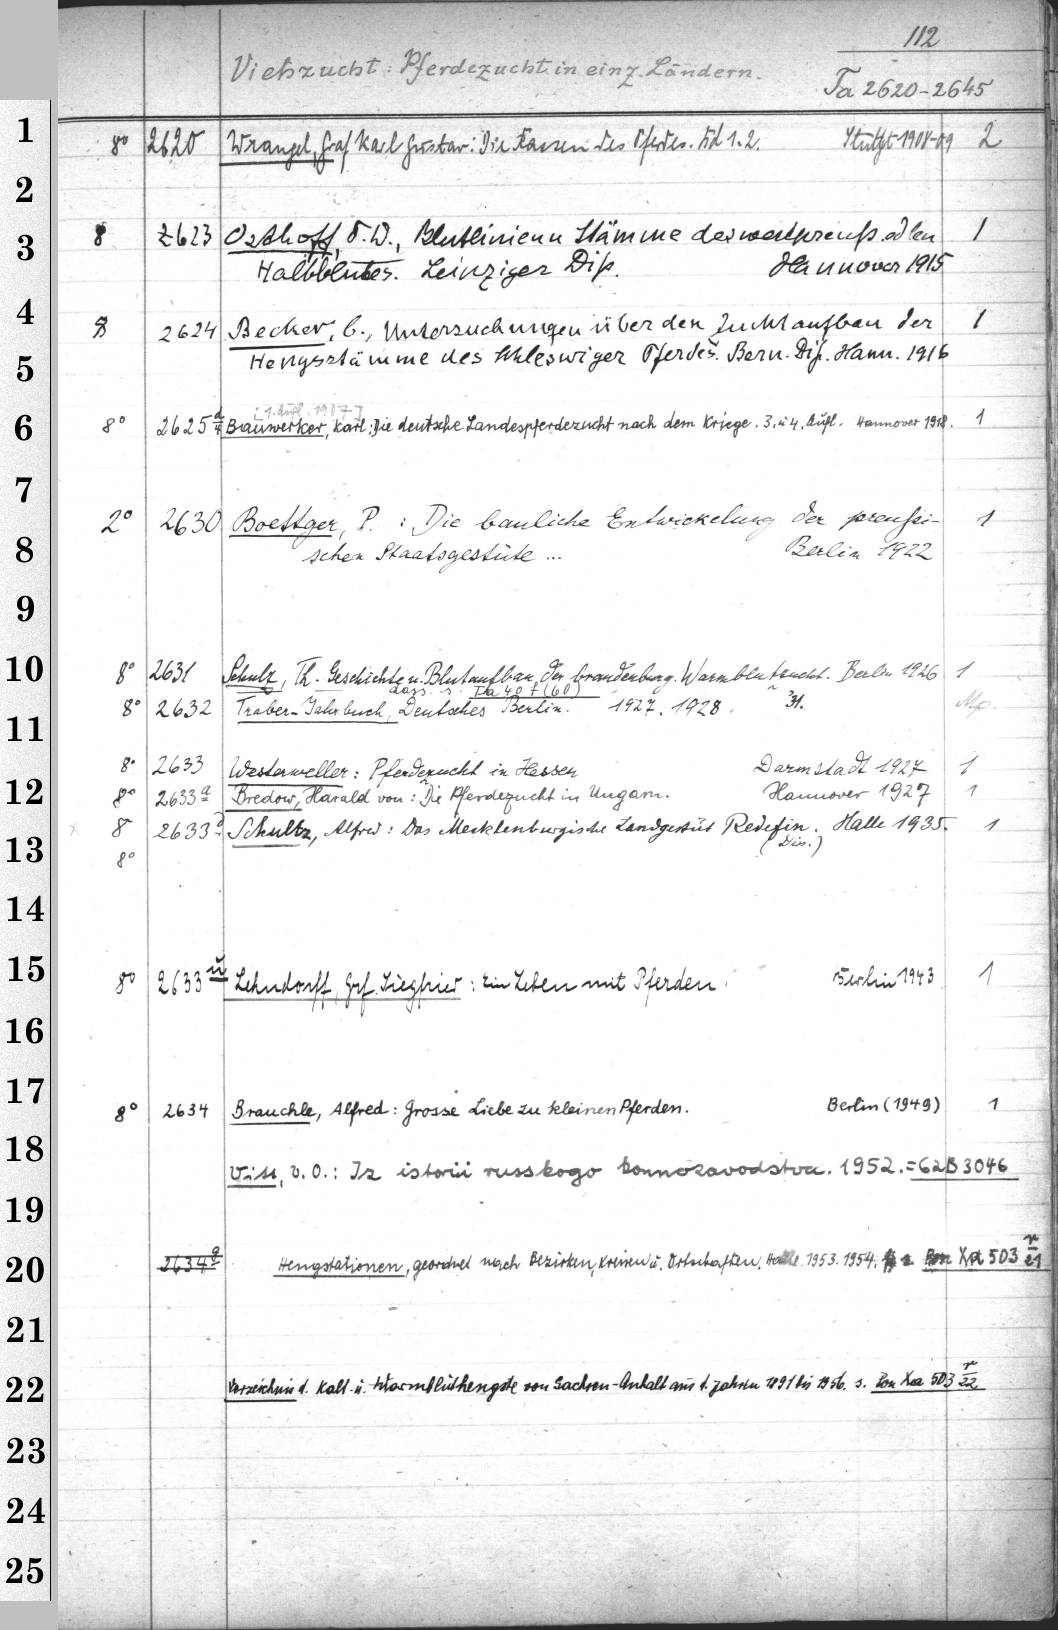 112
Viehzucht: Pferdezucht in einz. Ländern.
Ta 2620-2645
1
8° 2620 Wrangel, Graf Karl Gustav: Die Rassen des Pferdes. Bd 1.2. Stuttgt 1908-09 2
2
3
8 2623 Osthoff, F. W., Blutlinien u Stämme des westpreuß. edlen 1
Halbblutes. Leipziger Diss. Hannover 1915
4
8 2624 Becker, C., Untersuchungen über den Zuchtaufbau der 1
5
Hengststämme des Schleswiger Pferdes. Bern. Diss. Hann. 1916
[1. Aufl. 1907]
6
8° 2625 Bauwerker, Karl: Die deutsche Landespferdezucht nach dem Kriege. 3. u 4. Aufl. Hannover 1918. 1
7
2° 2630 Boettger, P. : Die bauliche Entwickelung der preußi- 1
8
schen Staatsgestüte ... Berlin 1922
9
10
8° 2631 Schulz, Th. Geschichte u. Blutaufbau der brandenburg. Warmblutzucht. Berlin 1926 1
8° 2632 Traber-Jahrbuch, Deutsches Berlin. 1927. 1928.
11
8° 2633 Westerweller: Pferdezucht in Hessen Darmstadt 1927 1
12
8° 2633a Bredow, Harald von: Die Pferdezucht in Ungarn. Hannover 1927 1
8 2633 Schultz, Alfred: Das Mecklenburgische Landgestüt Redefin. Halle 1935. 1
(Diss.)
13
8°
14
15
8° 2633u Lehndorff, Grf. Siegfried: Ein Leben mit Pferden Berlin 1943 1
16
17
8° 2634 Brauchle, Alfred: Grosse Liebe zu kleinen Pferden. Berlin (1949) 1
18
Vitt, V. O.: Iz istorii russkogo konnozavodstva. 1952. = 62B3046
19
20
2634g Hengstationen, geordnet nach Bezirken, Kreisen u. Ortschaften. Halle 1953. 1954. Xa 503 r/21
21
22
Verzeichnis d. Kalt- u. Warmbluthengste von Sachsen-Anhalt aus d. Jahren 1891 bis 1956. s. Xa 503 r/22
23
24
25